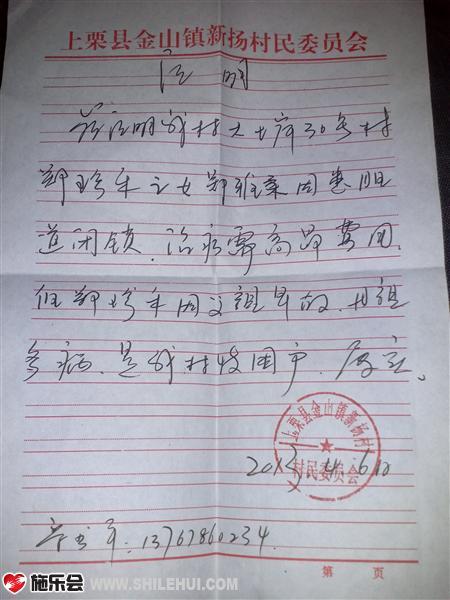 上栗县金山镇新扬村民委员会
证明
兹证明我村大土库30名村
郑珍年之女郑雅桑因患胆
道闭锁、治疗需高昂费用、
但郑珍年因父祖早故、母祖
多病、是我村特困户、属实。
上栗县金山镇新扬村
村民委员会
2013.4.6日
书年:13767860234
第 页
施乐会
施乐会 WWW.SHILEHUI.COM